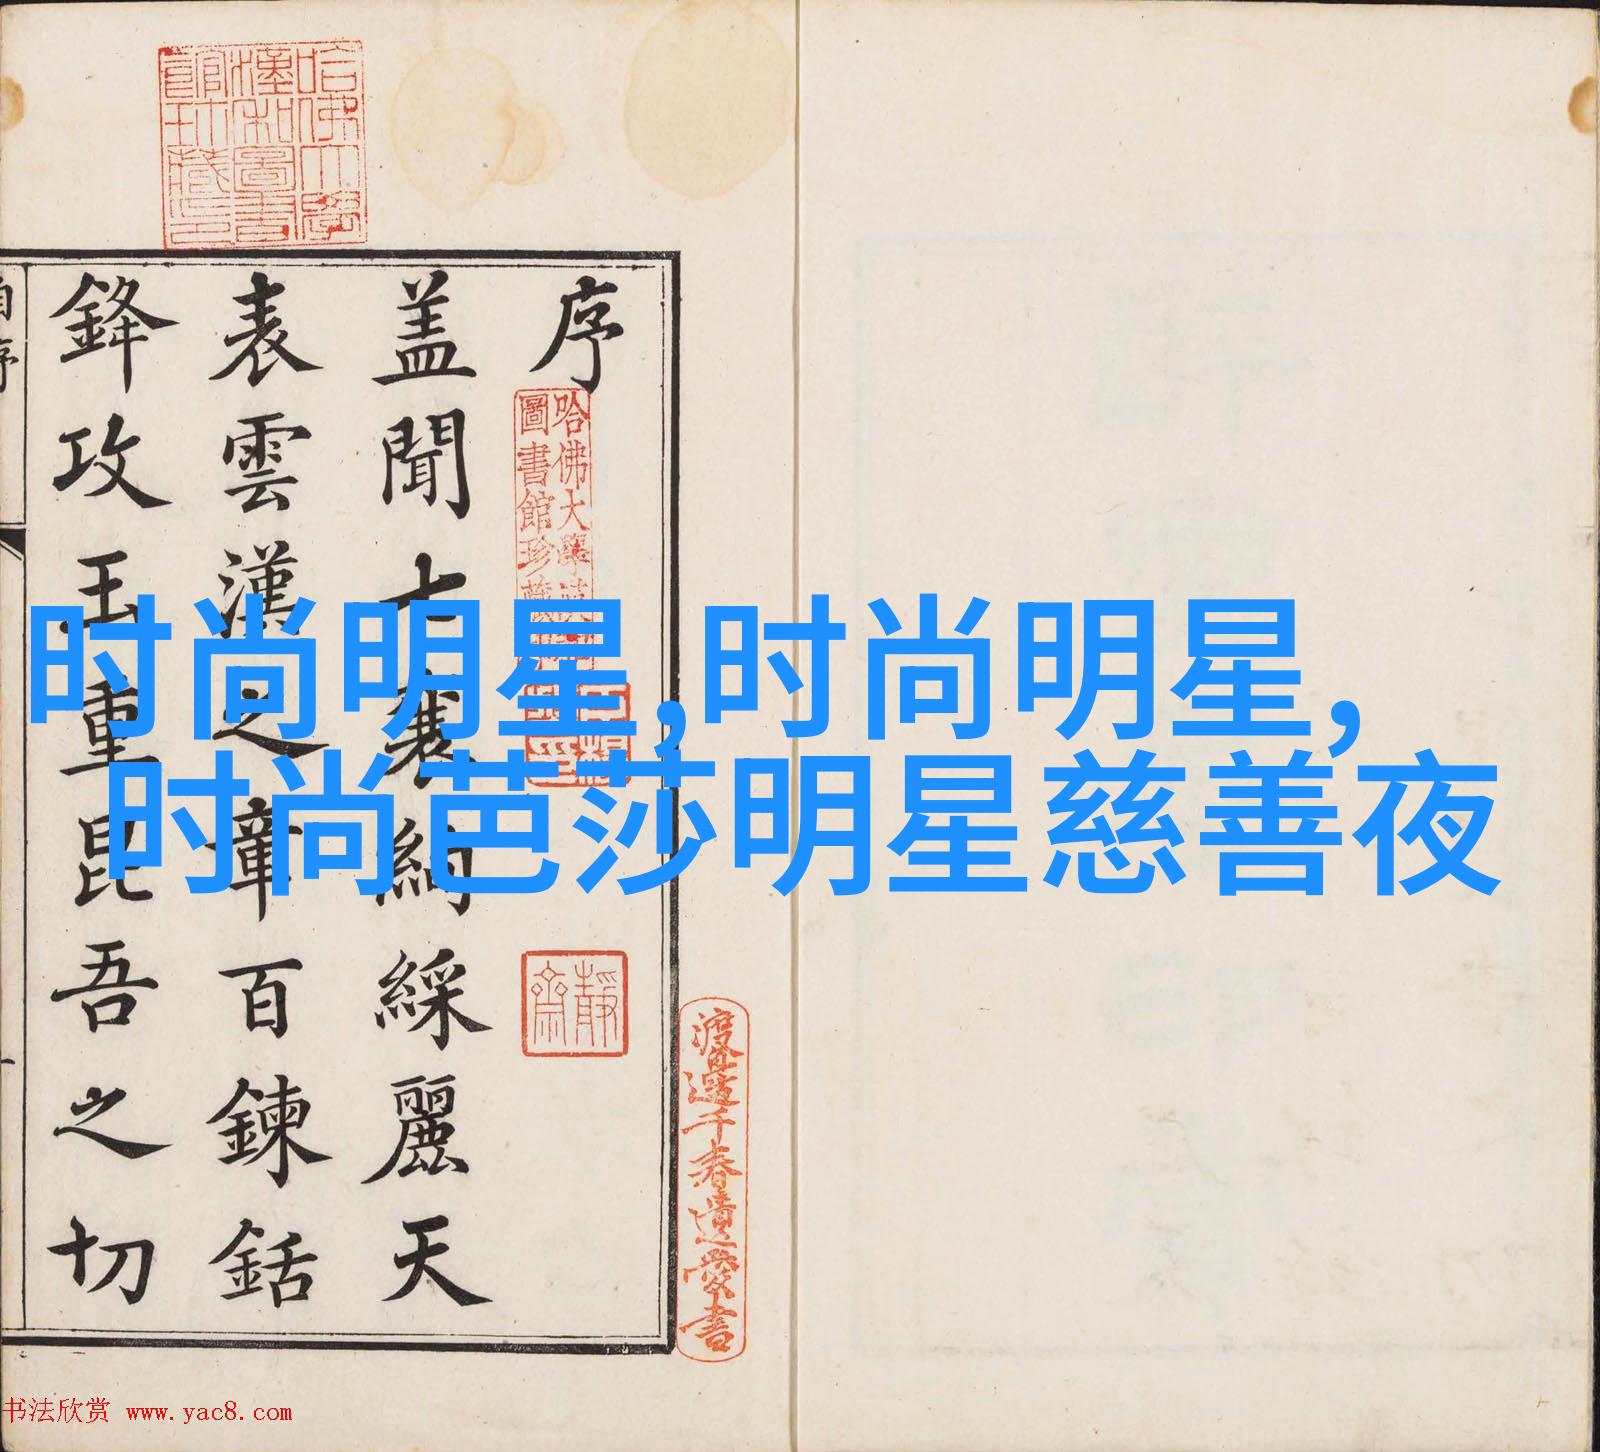 序
蓋聞七襄絢綵麗天
表雲漢之章百鍊銛
鋒攻玉重昆吾之切
自序
哈佛大學漢和圖書館珍藏印
哈佛大學漢和
圖書館珍藏印
靜齋
渡邊千春遺愛書
时尚明星,时尚明星,
时尚芭莎明星慈善夜
书法欣赏 www.yac8.com